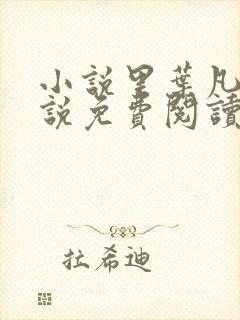 小說里葉凡
說免費閱讀
拉希迪